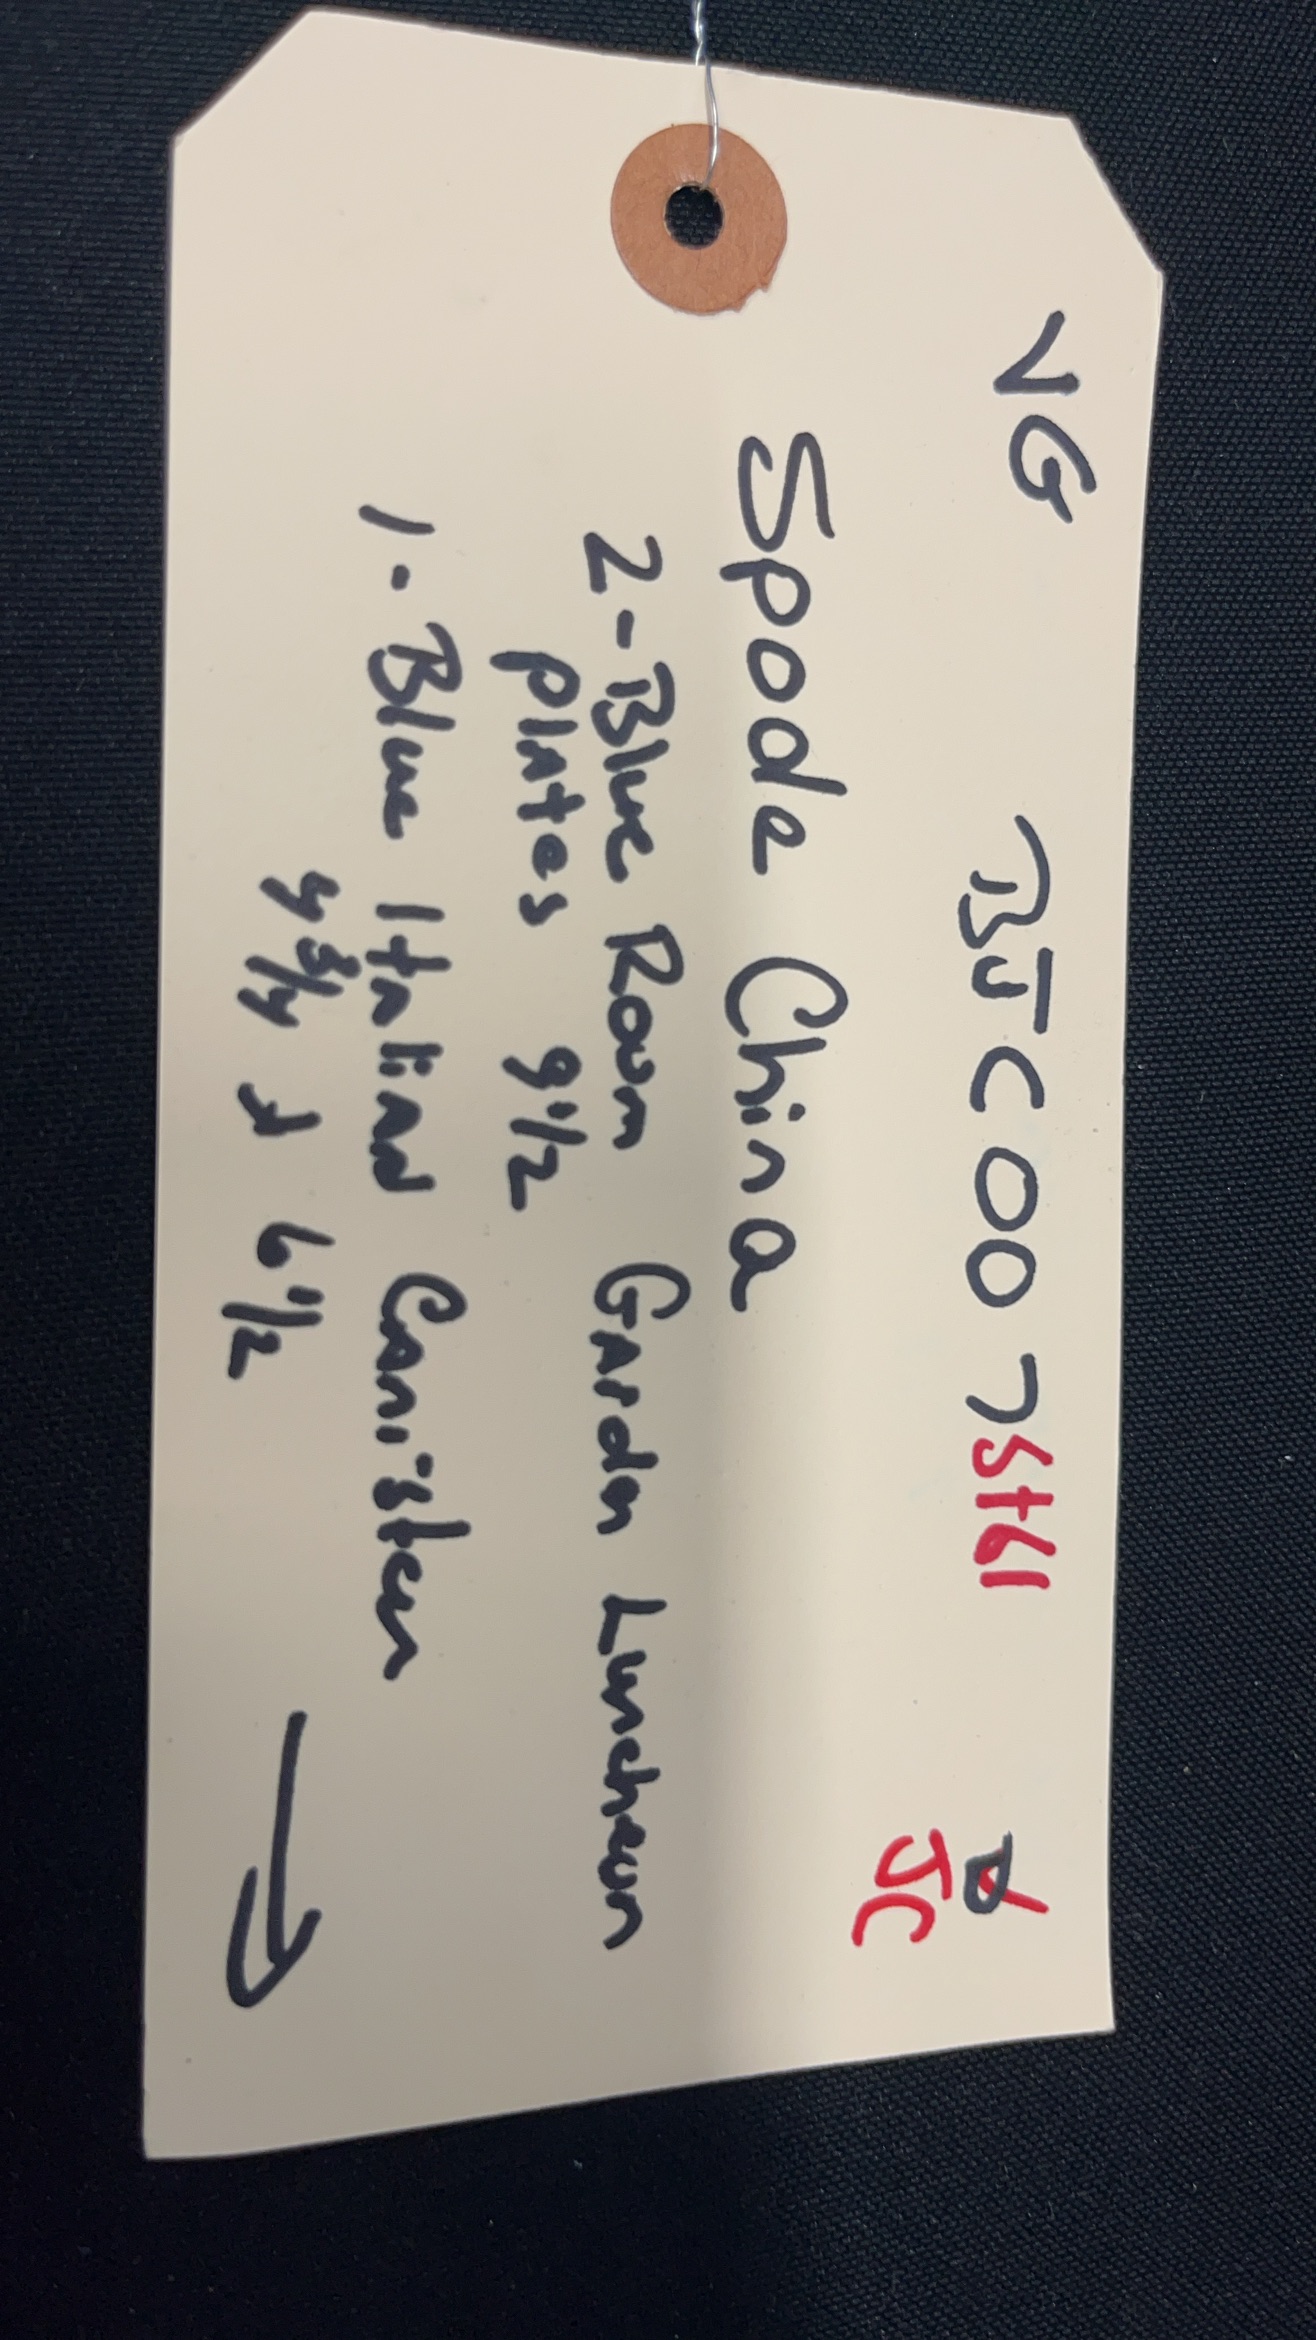 VG BJC007 5461
JC
Spode China
2-Blue Room Garden Luncheon
plates 9 1/2
1-Blue Italian Canister
4 3/4 x 6 1/2